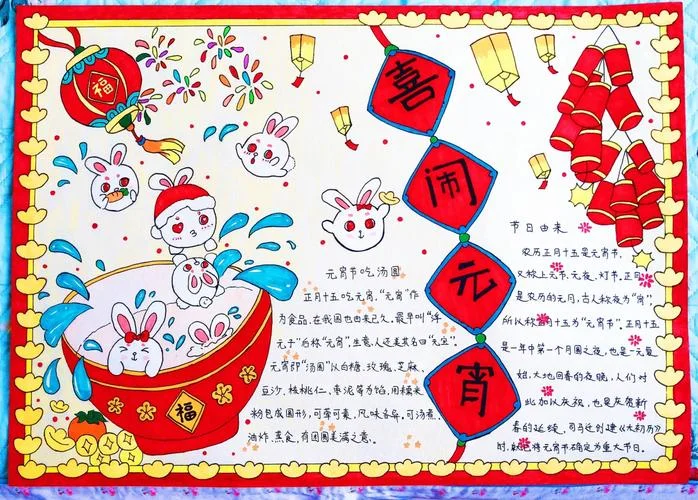 福
喜
闹
元
宵
元宵节吃汤圆
正月十五吃元宵,“元宵”作
为食品,在我国也由来已久。最早叫“浮
元子”后称“元宵”,生意人还美其名曰“元宝”。
元宵即“汤圆”以白糖、玫瑰、芝麻、
豆沙、核桃仁、枣泥等为馅,用糯米
粉包成圆形,可荤可素,风味各异。可汤煮、
油炸、蒸食、有团圆美满之意。
福
节日由来
农历正月十五是元宵节,
又称上元节、元夜、灯节。正月
是农历的元月,古人称夜为“宵”,
所以称十五为“元宵节”。正月十五
是一年中第一个月圆之夜,也是一元复
始,大地回春的夜晚,人们对
此加以庆祝,也是庆贺新
春的延续。司马迁创建《太初历》
时,就已将元宵节确定为重大节日。